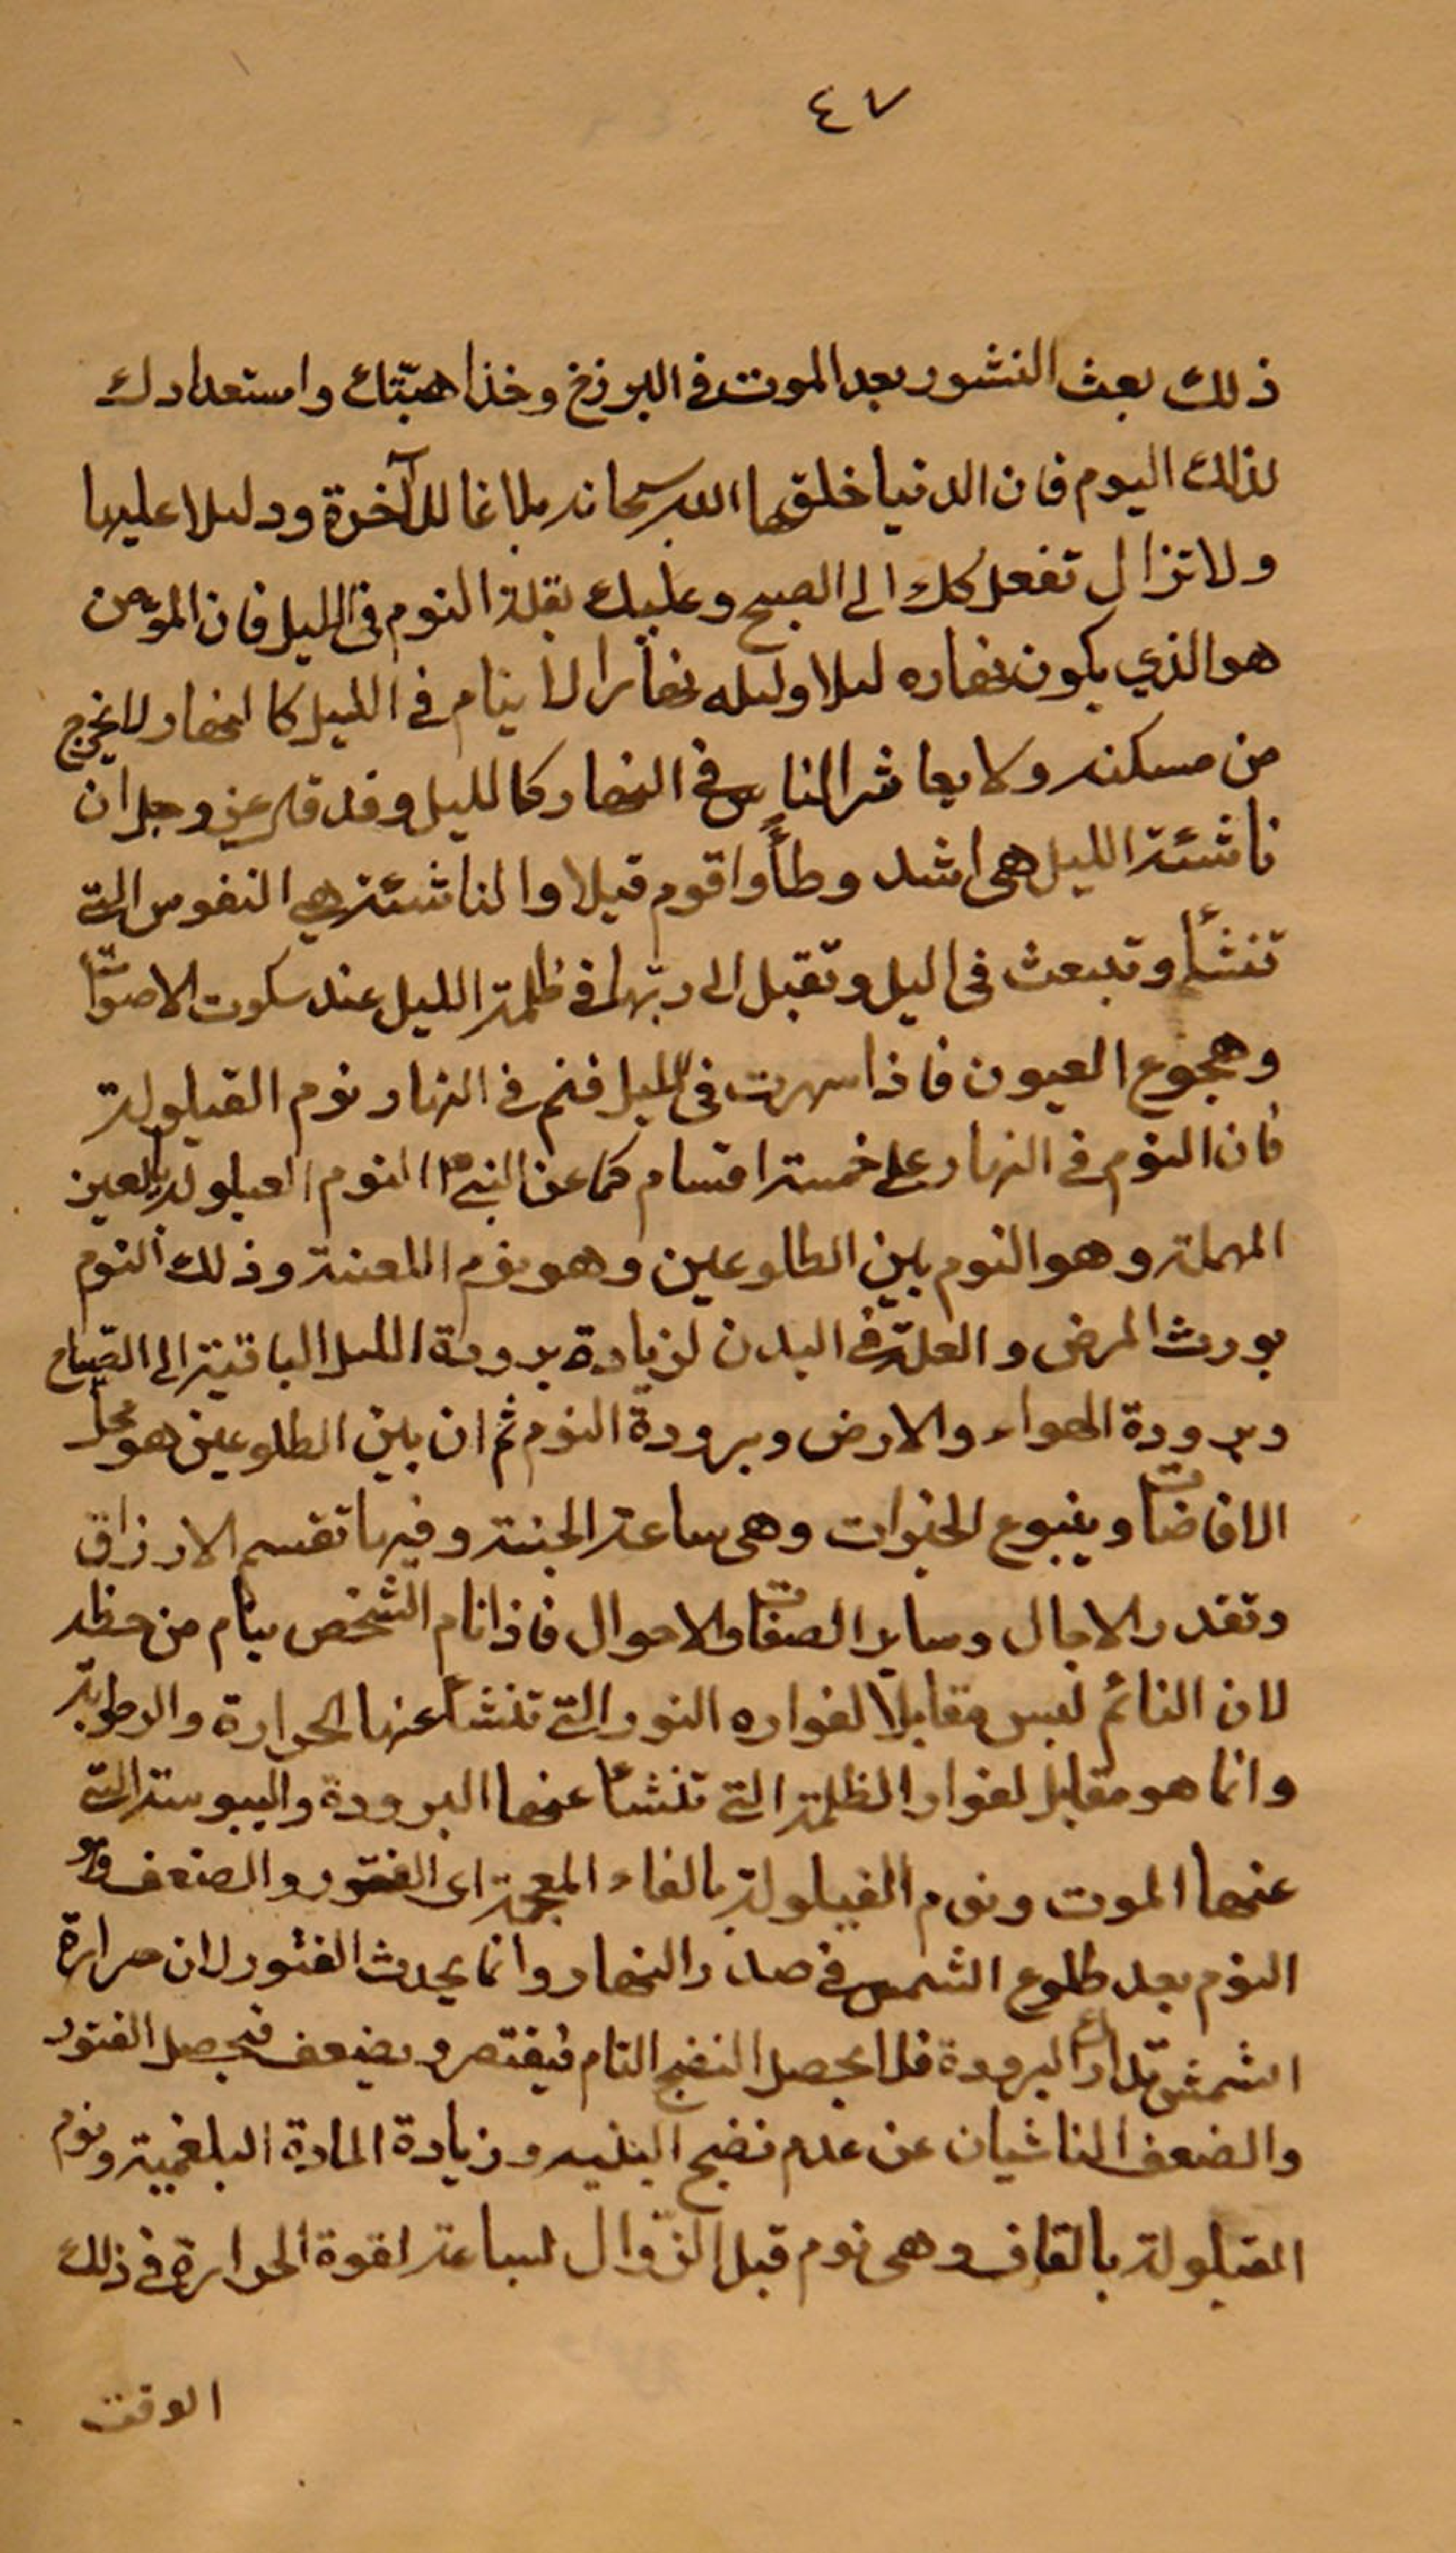 ٤٧
ذلك بعث النشور بعد الموت في البرزخ وخذ اهبتك واستعدادك
لذلك اليوم فان الدنيا خلقها الله سبحانه بلاغا للآخرة ودليلا عليها
ولا تزال تفعل كك الى الصبح وعليك بقلة النوم في الليل فان المؤمن
هو الذي يكون نهاره ليلا وليله نهارا لا ينام في الليل كالنهار لا يخرج
من مسكنه ولا يعاشر الناس في النهار كالليل وقد قال عز وجل ان
ناشئة الليل هي اشد وطأً واقوم قيلا والناشئة هي النفوس التي
تنشأ وتبعث في اليل وتقبل الى ربها في ظلمة الليل عند سكوت الاصوات
وهجوع العيون فاذا سهرت في الليل فنم في النهار نوم القيلولة
فان النوم في النهار على خمسة اقسام كما عن النبي ص النوم العيلولة بالعين
المهملة وهو النوم بين الطلوعين وهو نوم اللعنة وذلك النوم
يورث المرض والعلة في البدن لزيادة برودة الليل الباقية الى الصباح
وبرودة الهواء والارض وبرودة النوم ثم ان بين الطلوعين هو محل
الافاضات وينبوع الخيرات وهي ساعة الجنة وفيها تقسم الارزاق
وتقدر الاجال وساير الصفات والاحوال فاذا نام الشخص ينام من حظه
لان النائم ليس مقابلا لفواره النور التي تنشأ عنها الحرارة والرطوبة
وانما هو مقابل لفوار الظلمة التي تنشأ عنها البرودة واليبوسة التي
عنها الموت ونوم الفيلولة بالفاء المعجمة اى الفتور والضعف وهو
النوم بعد طلوع الشمس في صدر النهار وانما يحدث الفتور لان حرارة
الشمش تدافع البرودة فلا يحصل النضج التام فيفتر ويضعف فيحصل الفتور
والضعف الناشيان عن عدم نضج البنيه وزيادة المادة البلغمية ونوم
القيلولة بالقاف وهي نوم قبل الزوال لساعة لقوة الحرارة في ذلك
الوقت